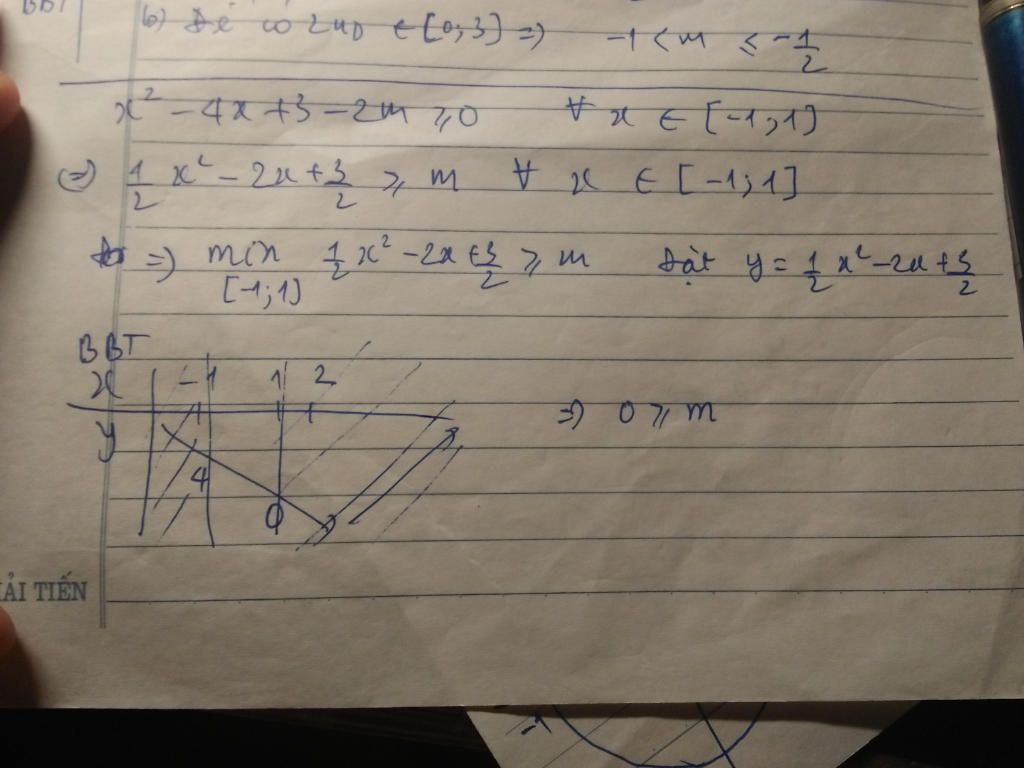 BBT
b) Để có 2 nD ∈ [0; 3] => -1 < m ≤ -1/2
x² - 4x + 3 - 2m ≥ 0 ∀ x ∈ [-1; 1]
(=) 1/2 x² - 2x + 3/2 ≥ m ∀ x ∈ [-1; 1]
=> min [-1; 1] 1/2 x² - 2x + 3/2 ≥ m Đặt y = 1/2 x² - 2x + 3/2
BBT
x -1 1 2
y 4 0 => 0 ≥ m
ẢI TIẾN